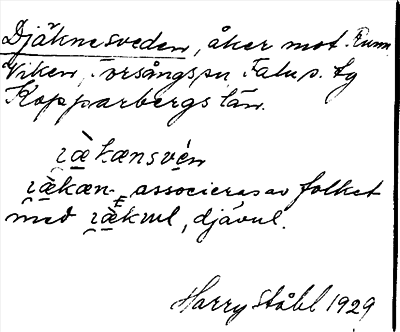 Djäknesveden, åker mot Runn
Viken, Torsångs sn Falu s. lg
Kopparbergs län.
ɿæ̀kænsvén
ɿæ̀kæn- associeras av folket
med ɿæ̀kvul, djävul.
Harry Ståhl 1929